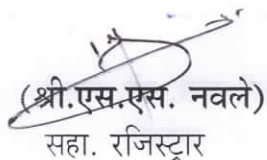 (श्री.एस.एस. नवले)
सहा. रजिस्ट्रार